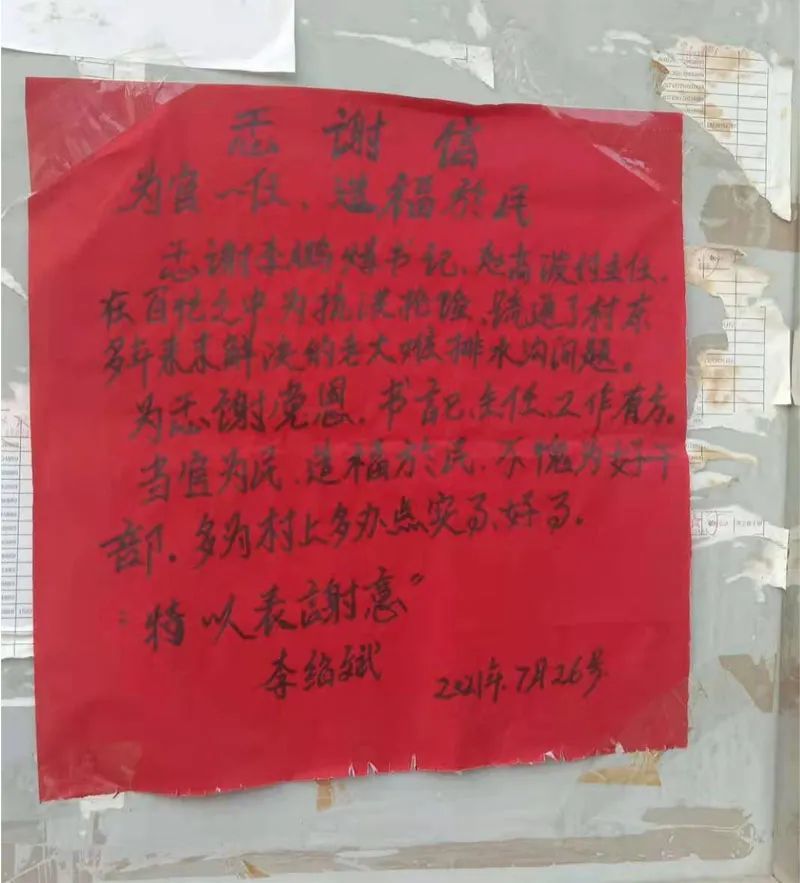 忎谢信
为官一任、造福於民
忎谢李鹏 书记、赵高波付主任、
在百忙之中、为抗洪抢险、疏通了村东
多年来未解决的老大难排水沟问题。
为忎謝党恩、书記、主任、工作有方。
当官为民、造福於民、不愧为好干
部。多为村上多办点实事、好事。
"特以表謝意"
李绍斌 2021年7月26号